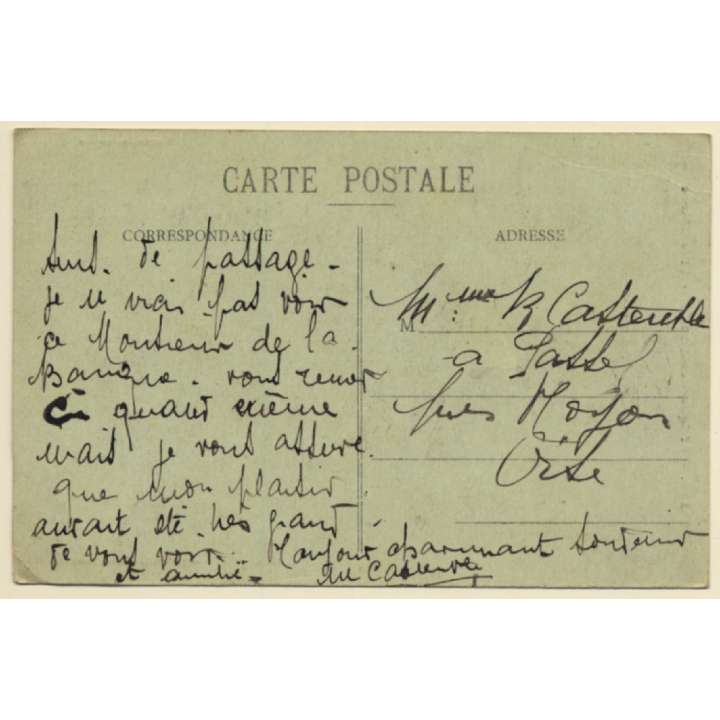 CARTE POSTALE
CORRESPONDANCE
de passage -
je ne vais pas voir
ce Monsieur de la
Banque - vous
quand même
mais je vous assure
que mon plaisir
aurait été très grand
de vous voir.
et amitié -
ADRESSE
M me
à Passel
près Noyon
Oise